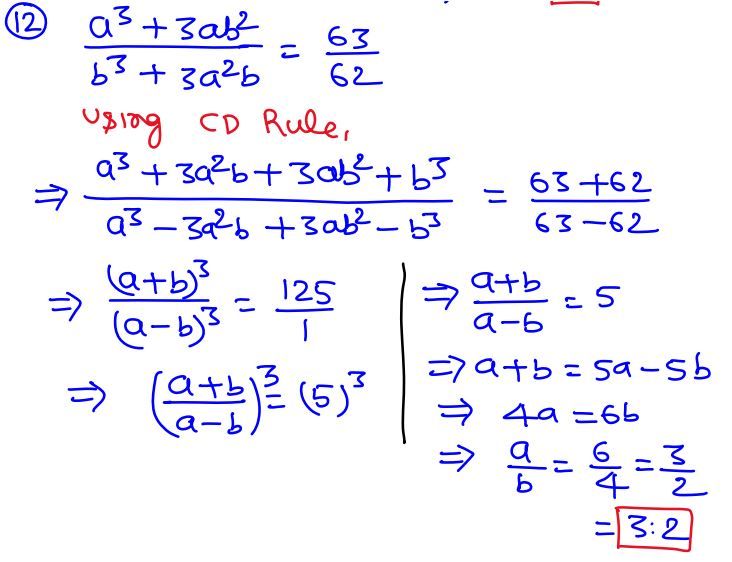 12 a³ + 3ab² / b³ + 3a²b = 63/62
Using CD Rule,
⇒ a³ + 3a²b + 3ab² + b³ / a³ − 3a²b + 3ab² − b³ = 63+62 / 63−62
⇒ (a+b)³ / (a−b)³ = 125/1
⇒ (a+b / a−b)³ = (5)³
⇒ a+b / a−b = 5
⇒ a+b = 5a−5b
⇒ 4a = 6b
⇒ a/b = 6/4 = 3/2
= 3:2